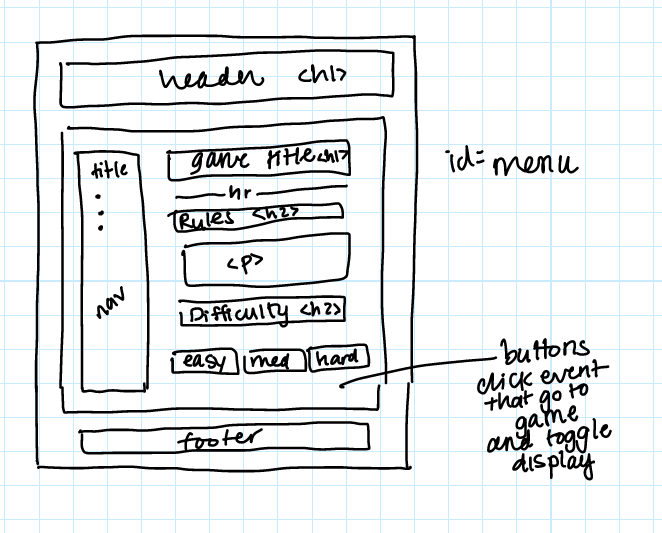 header <h1>
title
game title <h1>
hr
Rules <h2>
<p>
nav
Difficulty <h2>
easy
med
hard
footer
id= menu
buttons
click event
that go to
game
and toggle
display